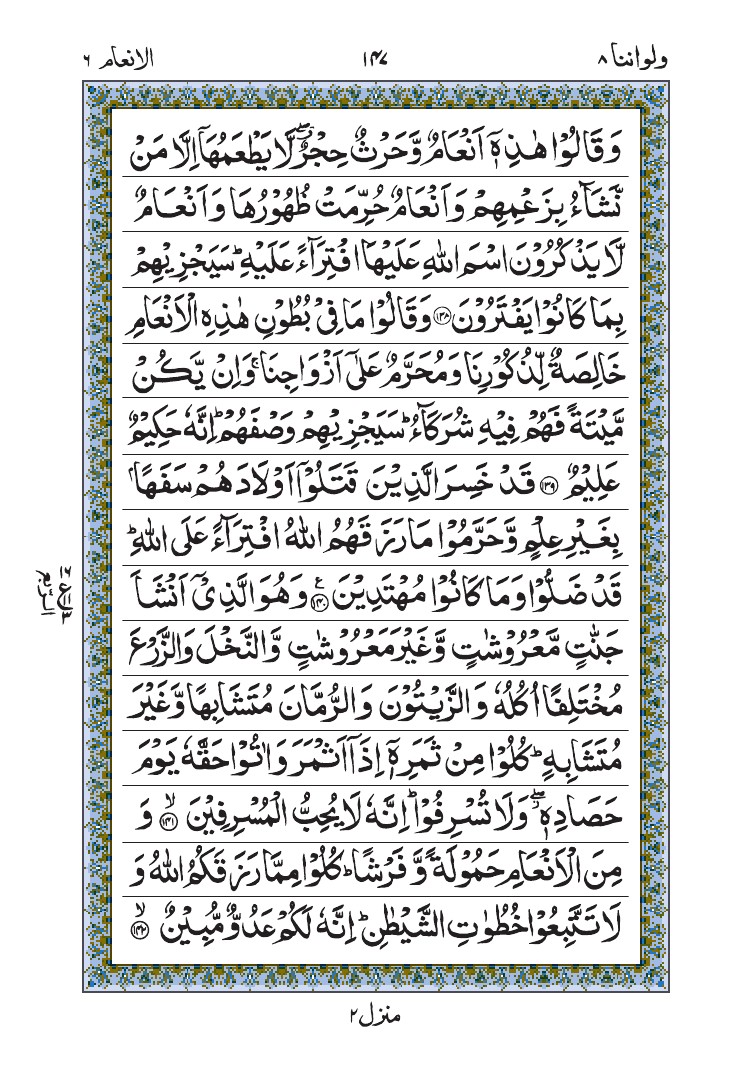 ولواننا ٨
١٤٧
الانعام ٦
وَقَالُوْا هٰذِهٖۤ اَنْعَامٌ وَّحَرْثٌ حِجْرٌ ۖۗ لَّا يَطْعَمُهَاۤ اِلَّا مَنْ
نَّشَآءُ بِزَعْمِهِمْ وَاَنْعَامٌ حُرِّمَتْ ظُهُوْرُهَا وَاَنْعَامٌ
لَّا يَذْكُرُوْنَ اسْمَ اللّٰهِ عَلَيْهَا افْتِرَآءً عَلَيْهِ ؕ سَيَجْزِيْهِمْ
بِمَا كَانُوْا يَفْتَرُوْنَ ﴿۱۳۸﴾ وَقَالُوْا مَا فِيْ بُطُوْنِ هٰذِهِ الْاَنْعَامِ
خَالِصَةٌ لِّذُكُوْرِنَا وَمُحَرَّمٌ عَلٰۤى اَزْوَاجِنَا ۚ وَاِنْ يَّكُنْ
مَّيْتَةً فَهُمْ فِيْهِ شُرَكَآءُ ؕ سَيَجْزِيْهِمْ وَصْفَهُمْ ؕ اِنَّهٗ حَكِيْمٌ
عَلِيْمٌ ﴿۱۳۹﴾ قَدْ خَسِرَ الَّذِيْنَ قَتَلُوْۤا اَوْلَادَهُمْ سَفَهًاۢ
بِغَيْرِ عِلْمٍ وَّحَرَّمُوْا مَا رَزَقَهُمُ اللّٰهُ افْتِرَآءً عَلَى اللّٰهِ ؕ
قَدْ ضَلُّوْا وَمَا كَانُوْا مُهْتَدِيْنَ ﴿۱۴۰﴾ ع وَهُوَ الَّذِيْۤ اَنْشَاَ
جَنّٰتٍ مَّعْرُوْشٰتٍ وَّغَيْرَ مَعْرُوْشٰتٍ وَّالنَّخْلَ وَالزَّرْعَ
مُخْتَلِفًا اُكُلُهٗ وَالزَّيْتُوْنَ وَالرُّمَّانَ مُتَشَابِهًا وَّغَيْرَ
مُتَشَابِهٍ ؕ كُلُوْا مِنْ ثَمَرِهٖۤ اِذَاۤ اَثْمَرَ وَاٰتُوْا حَقَّهٗ يَوْمَ
حَصَادِهٖ ۖ وَلَا تُسْرِفُوْا ؕ اِنَّهٗ لَا يُحِبُّ الْمُسْرِفِيْنَ ﴿۱۴۱﴾ ۙ وَ
مِنَ الْاَنْعَامِ حَمُوْلَةً وَّفَرْشًا ؕ كُلُوْا مِمَّا رَزَقَكُمُ اللّٰهُ وَ
لَا تَتَّبِعُوْا خُطُوٰتِ الشَّيْطٰنِ ؕ اِنَّهٗ لَكُمْ عَدُوٌّ مُّبِيْنٌ ﴿۱۴۲﴾ ۙ
۱۶
ع
۳
الربع
منزل ٢